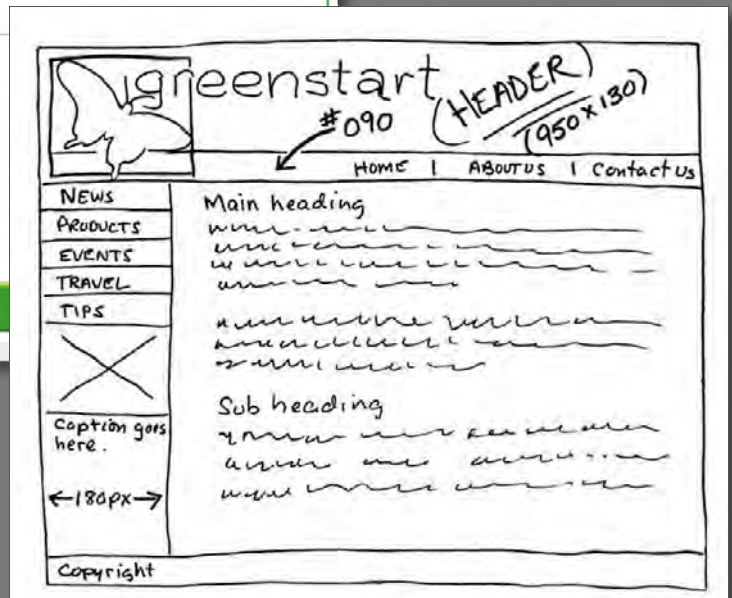 greenstart
(HEADER)
(950x130)
#090
HOME | ABOUT US | Contact Us
NEWS
PRODUCTS
EVENTS
TRAVEL
TIPS
Caption goes
here.
←180px→
Main heading
Sub heading
Copyright